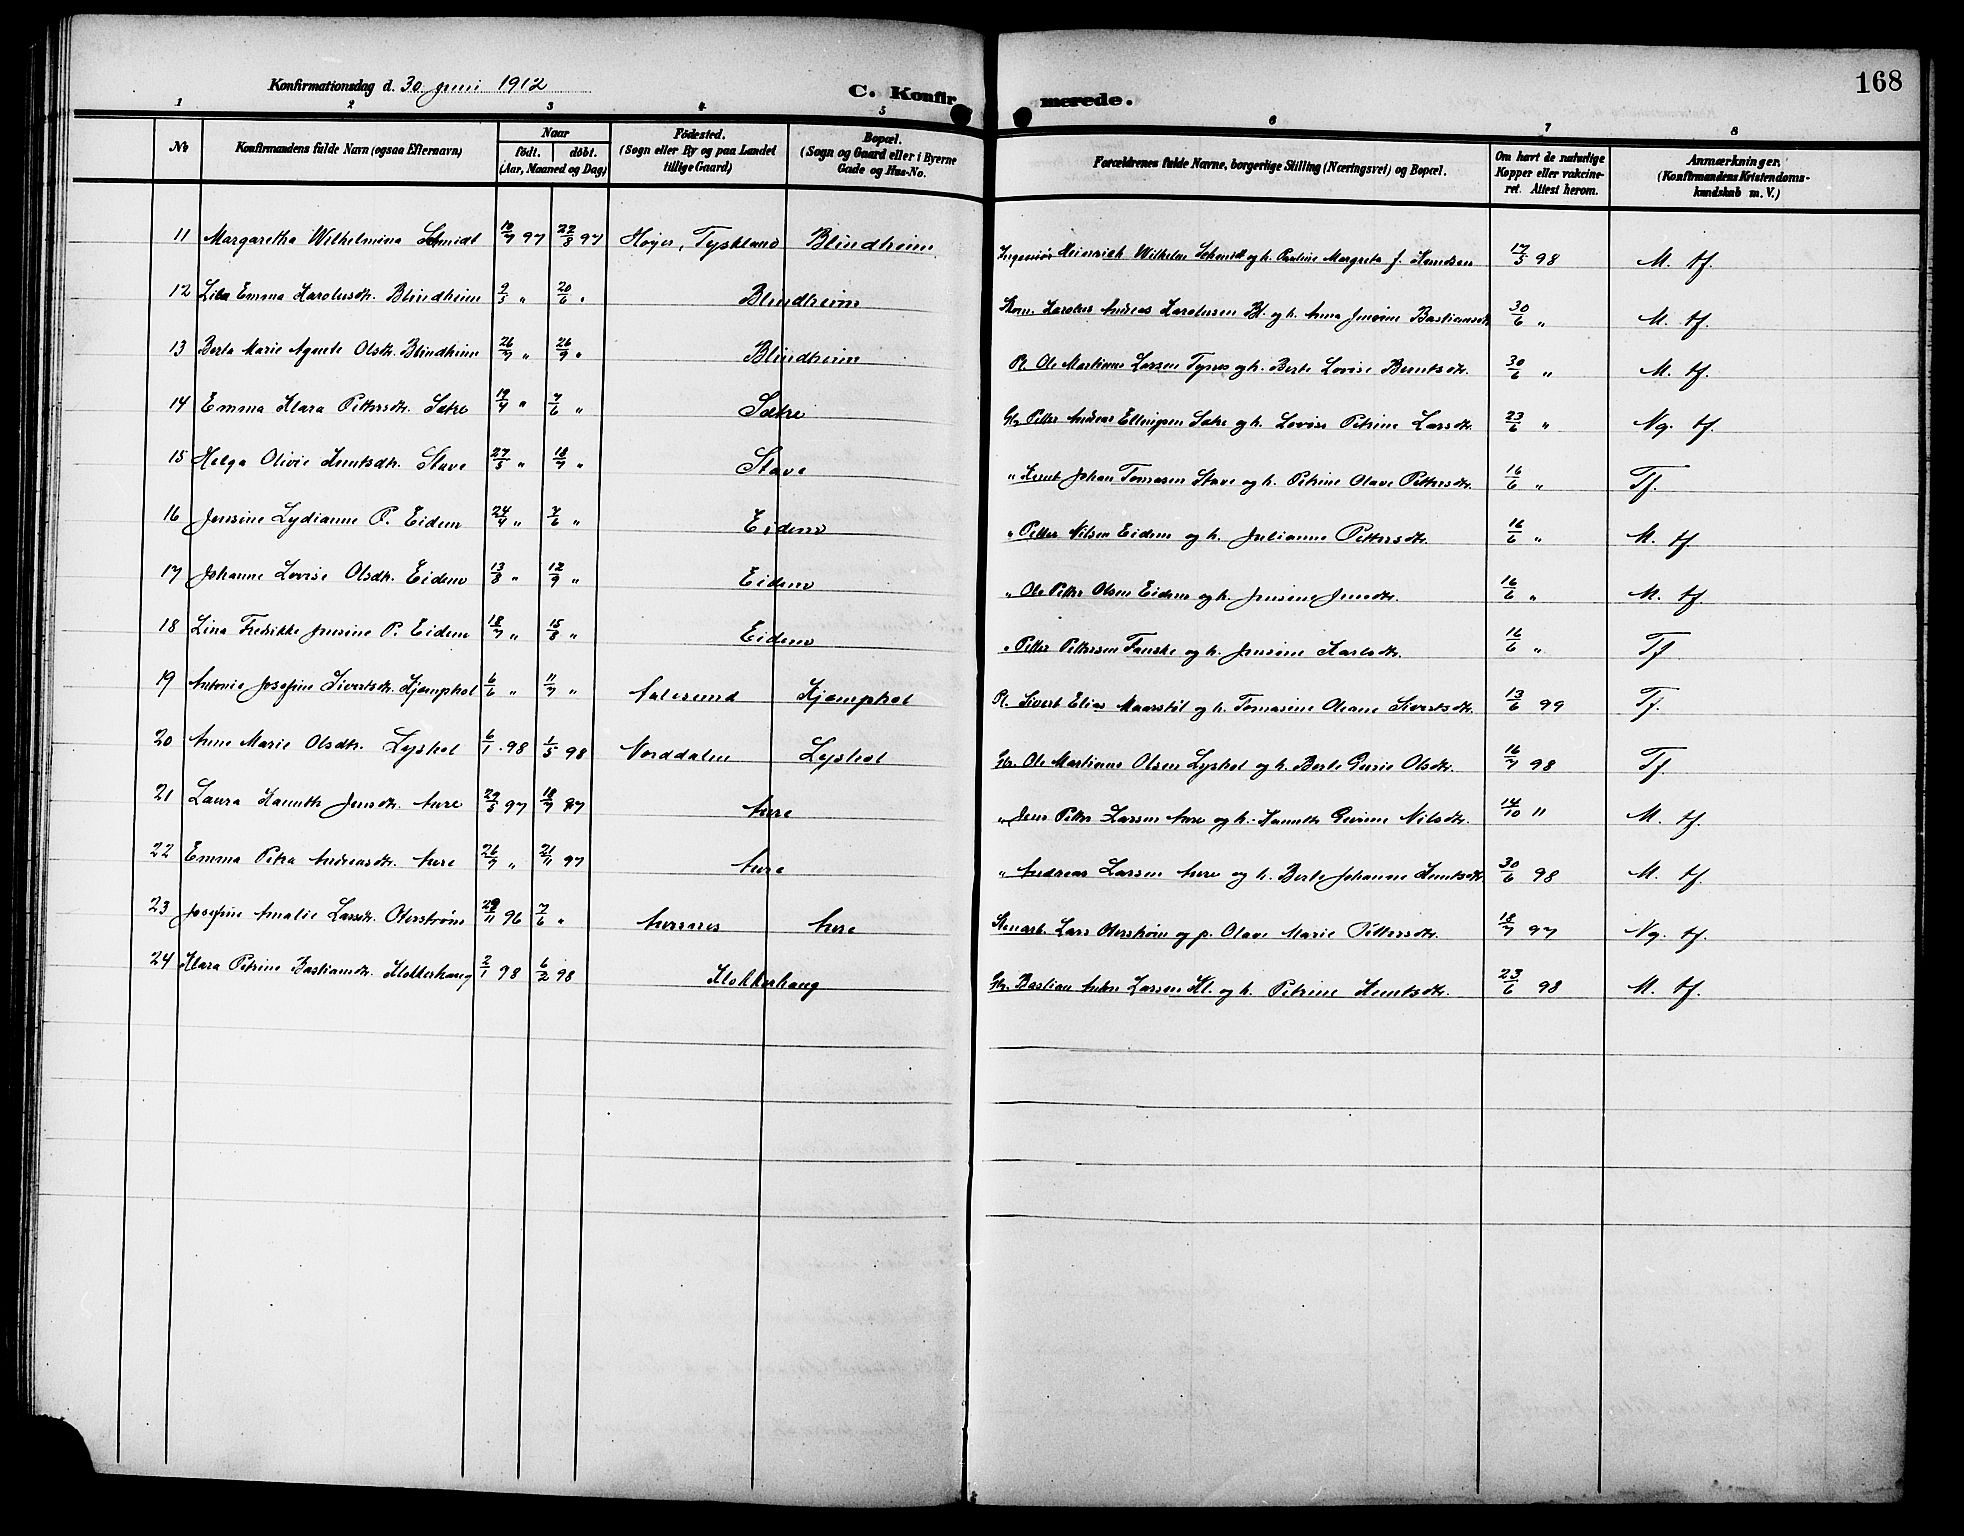 Konfirmationsdag d. 30 juni 1912
C. Konfirmerede.
168
1 2 3 4 5 6 7 8
No
Konfirmandens fulde Navn (ogsaa Efternavn)
Naar
født. døbt.
(Aar, Maaned og Dag)
Fødested.
(Sogn eller By og paa Landet
tillige Gaard)
Bopæl.
(Sogn og Gaard eller i Byerne
Gade og Hus-No.
Forældrenes fulde Navne, borgerlige Stilling (Næringsvei) og Bopæl.
Om havt de naturlige
Kopper eller vakcine-
ret. Attest herom.
Anmærkninger.
(Konfirmandens Kristendoms-
kundskab m. V.)
11 Margaretha Wilhelmina Schmidt 97 22/8 97 Høyer, Tyskland Blindheim Ingeniør Heinrich Wilhelm Schmidt og h. Pauline Margreta f. Knudsen 17/5 98 M. tf.
12 Emma Karolusdtr. Blindheim 9/5 " 20/6 " Blindheim Karolus Andreas Karolusen Bl. og h. Anna Jensine Bastiansdtr. 30/6 " M. tf.
13 Berta Marie Agnete Olsdtr. Blindheim 26/7 " 26/9 " Blindheim Pl. Ole Martinus Larsen og h. Berte Lovise Berntsdtr. 30/6 " M. tf.
14 Emma Klara Pettersdtr. Sætre 19/4 " 7/6 " Sætre Gbr. Petter Andreas Ellingsen Sætre og h. Lovise Petrine Larsdtr. 23/6 " Ng. tf.
15 Helga Olivie Knutsdtr. Stave 27/5 " 18/7 " Stave " Knut Johan Tomasen Stave og h. Petrine Olave Pettersdtr. 16/6 " Tf.
16 Jensine Lydianne P. Eidem 24/4 " 7/6 " Eidem " Petter Nilsen Eidem og h. Julianne Pettersdtr. 16/6 " M. tf.
17 Johanne Lovise Olsdtr. Eidem 13/8 " 12/9 " Eidem " Ole Petter Olsen Eidem og h. Jensine Jensdtr. 16/6 " M. tf.
18 Lina Fredrikke Jensine P. Eidem 18/7 " 15/8 " Eidem " Petter Pettersen Fauske og h. Jensine Karlsdtr. 16/6 " Tf
19 Antonie Josefine Sivertsdtr. Kjemphol 6/6 " 11/7 " Aalesund Kjemphol Pl. Sivert Elias Maarstøl og h. Tomasine Oleane Sivertsdtr. 13/6 99 Tf.
20 Anne Marie Olsdtr. Lyshol 6/1 98 1/5 98 Norddalen Lyshol Gbr. Ole Martinus Olsen Lyshol og h. Berte Gurie Olsdtr. 16/7 98 Tf.
21 Laura Hanette Jensdtr. Aure 29/5 97 18/7 97 Aure " Jens Petter Larsen Aure og h. Hanette Nilsdtr. 14/10 " M. tf.
22 Emma Petra Andreasdtr. Aure 26/7 " 21/11 97 Aure " Andreas Larsen Aure og h. Berte Johanne Knutsdtr. 30/6 98 M. tf.
23 Josefine Amalie Larsdtr. Oterstrøm 29/11 96 7/6 " Aure Lars Oterstrøm og p. Olave Marie Pettersdtr. 18/7 97 Ng. tf.
24 Klara Petrine Bastiansdtr. Klokkerhaug 2/1 98 6/2 98 Klokkerhaug Gbr. Bastian Anton Larsen Kl. og h. Petrine Knutsdtr. 23/6 98 M. tf.